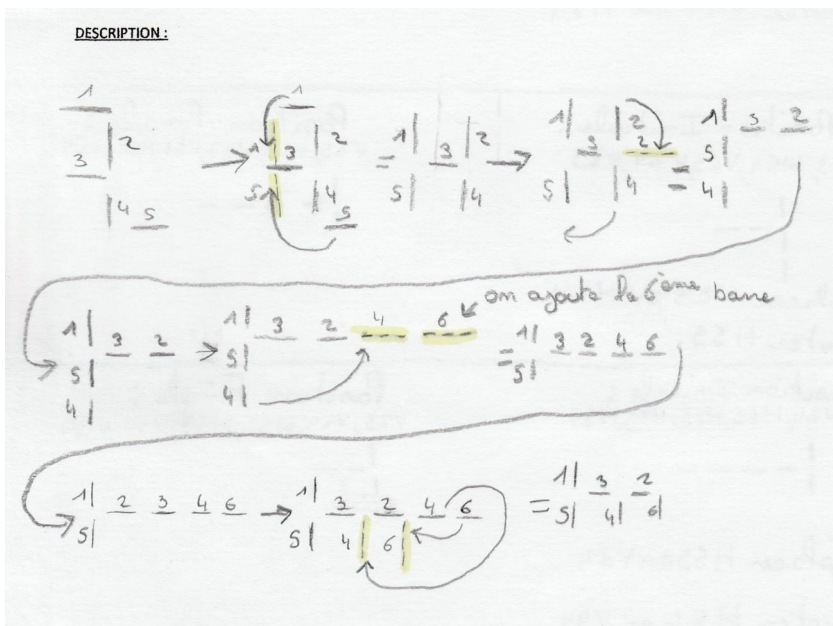 DESCRIPTION :
1
2
3
4 5
→ 1
1 3 2
5 4 5
= 1 3 2
5 4
→ 1 3 2 2
5 4
= 1 3 2
5
4
1 3 2
5
4
→ 1 3 2 4 6
5
4
on ajoute la 6ème barre
= 1 3 2 4 6
5
1 2 3 4 6
5
→ 1 3 2 4 6
5 4 6
= 1 3 2
5 4 6